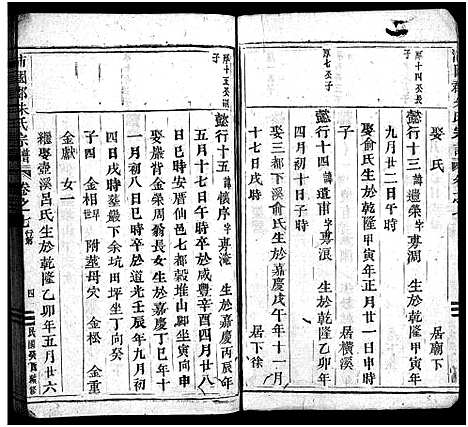 厚十四公長子
娶氏　居廟下
懿行十三諱遺榮字專潤　生於乾隆甲寅年
九月廿二日午時
娶俞氏生於乾隆甲寅年正月廿一日申時
子　居橫溪
厚七公子
懿行十四諱遺甫字專浪　生於乾隆乙卯年
四月初十日子時
娶三都下溪俞氏生於嘉慶戊午年十一月
十七日戌時　居下徐
厚十五公嗣子
懿行十五諱懷序字專淹　生於嘉慶丙辰年
五月十七日午時卒於咸豐辛酉四月廿八
日巳時安厝仙邑七都穀堆山坐寅向申
娶嚴背金榮周翁長女生於嘉慶丁巳年十
一月初八日亥時卒於道光壬辰年九月初
四日戌時墓巖下余坑田坪坐丁向癸
子四　金相　附葬母穴　金松　金重
金獻　女一
繼娶壺溪呂氏生於乾隆乙卯年五月廿六
沛國郡朱氏宗譜　卷之七　行第
四